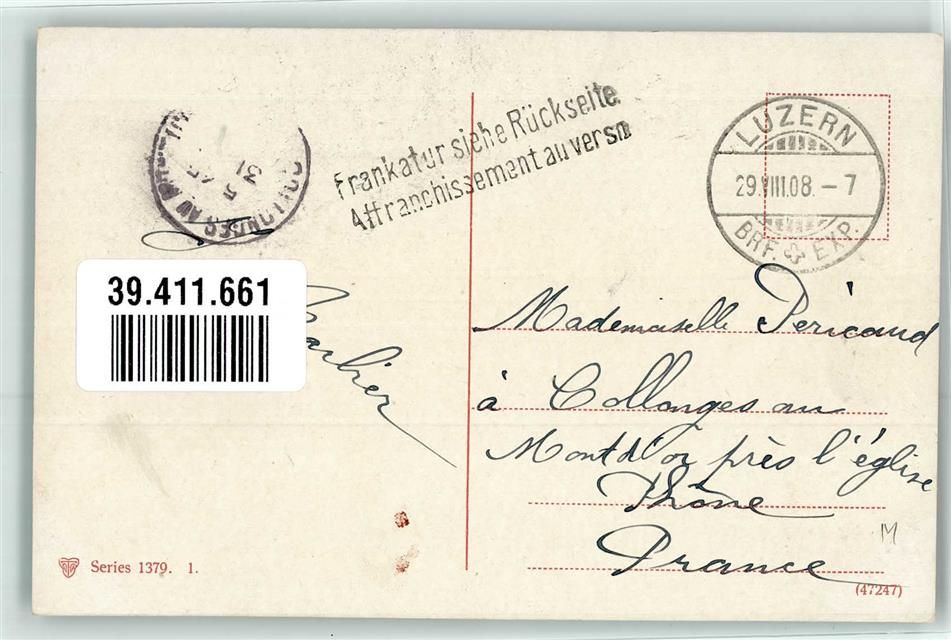 Frankatur siehe Rückseite.
Affranchissement au verso
LUZERN
29.VIII.08.-7
BRF. EXP.
COLLONGES AU
31
39.411.661
Mademoiselle Péricaud
à Collonges au
Mont d'or près l'église
Rhône
France
M
Series 1379. 1.
(47247)